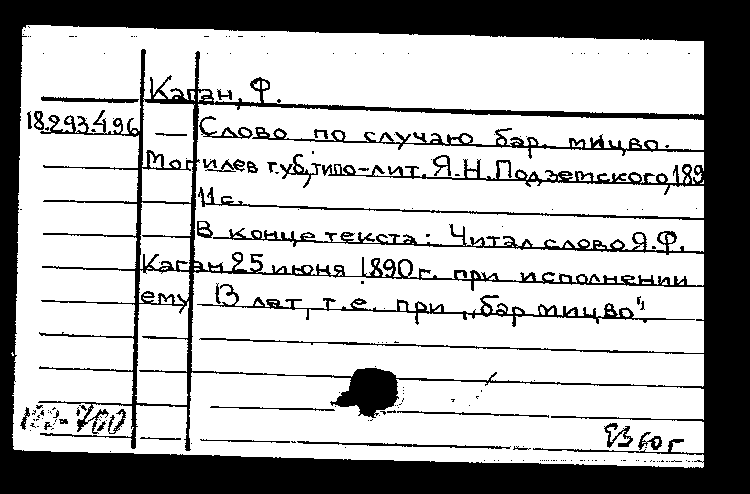 Каган, Ф.
18.293.4.96 — Слово по случаю бар. мицво.
Могилев губ, типо-лит. Я.Н. Подземского, 189
11 с.
В конце текста: Читал слово Я.Ф.
Каган 25 июня 1890 г. при исполнении
ему 13 лет, т.е. при „бар мицво".
-700
60 г